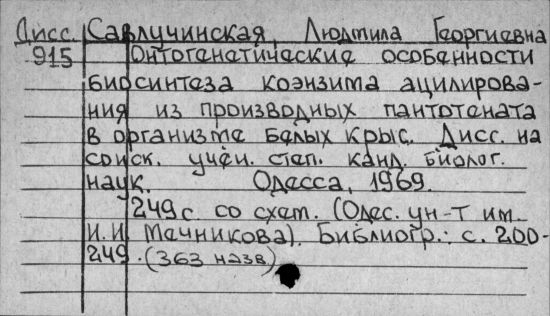 Дисс. Савлучинская, Людмила Георгиевна
915 Онтогенетические особенности
биосинтеза коэнзима ацилирова-
ния из производных пантотената
в организме белых крыс. Дисс. на
соиск. учен. степ. канд. биолог.
наук. Одесса, 1969.
249 с. со схем. (Одес. ун-т им.
И.И. Мечникова). Библиогр.: с. 200-
249. (363 назв)